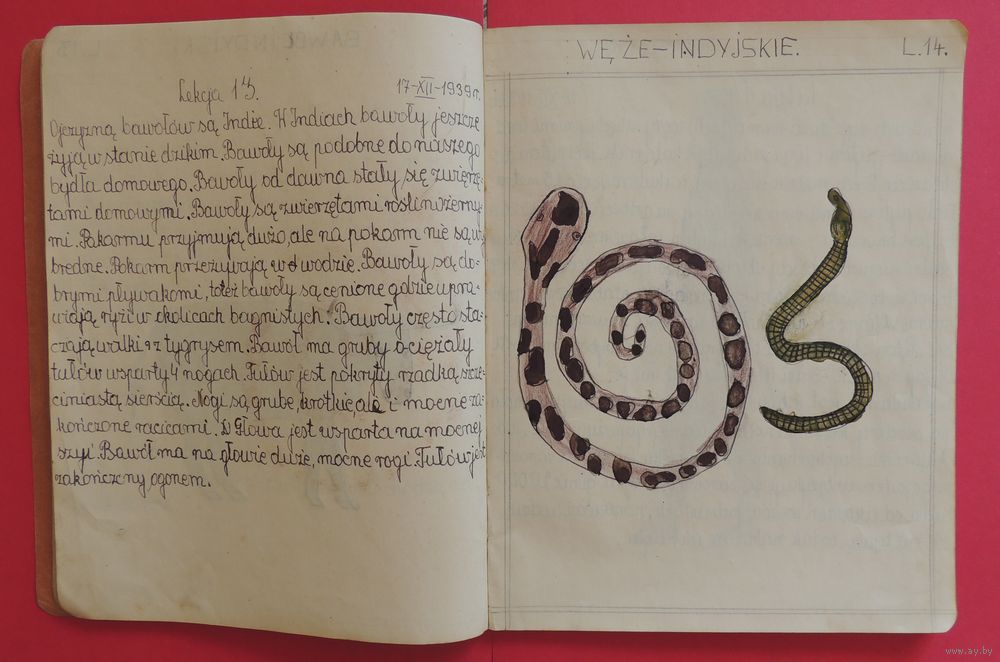 Lekcja 13. 17-XII-1939r.
Ojczyzną bawołów są Indie. W Indiach bawoły jeszcze
żyją w stanie dzikim. Bawoły są podobne do naszego
bydła domowego. Bawoły od dawna stały się zwierzę-
tami domowymi. Bawoły są zwierzętami roślinożerny-
mi. Pokarmu przyjmują dużo, ale na pokarm nie są wy
bredne. Pokarm przeżuwają w wodzie. Bawoły są do-
brymi pływakami, toteż bawoły są cenione gdzie upra-
wiają ryż w okolicach bagnistych. Bawoły często sta-
czają walki z tygrysem. Bawół ma gruby ociężały
tułów wsparty 4 nogach. Tułów jest pokryty rzadką szcze
ciniastą sierścią. Nogi są grube, krótkie ale i mocne za-
kończone racicami. Głowa jest wsparta na mocnej
szyi. Bawół ma na głowie duże, mocne rogi. Tułów jest
zakończony ogonem.
WĘŻE-INDYJSKIE. L.14.
www.ay.by